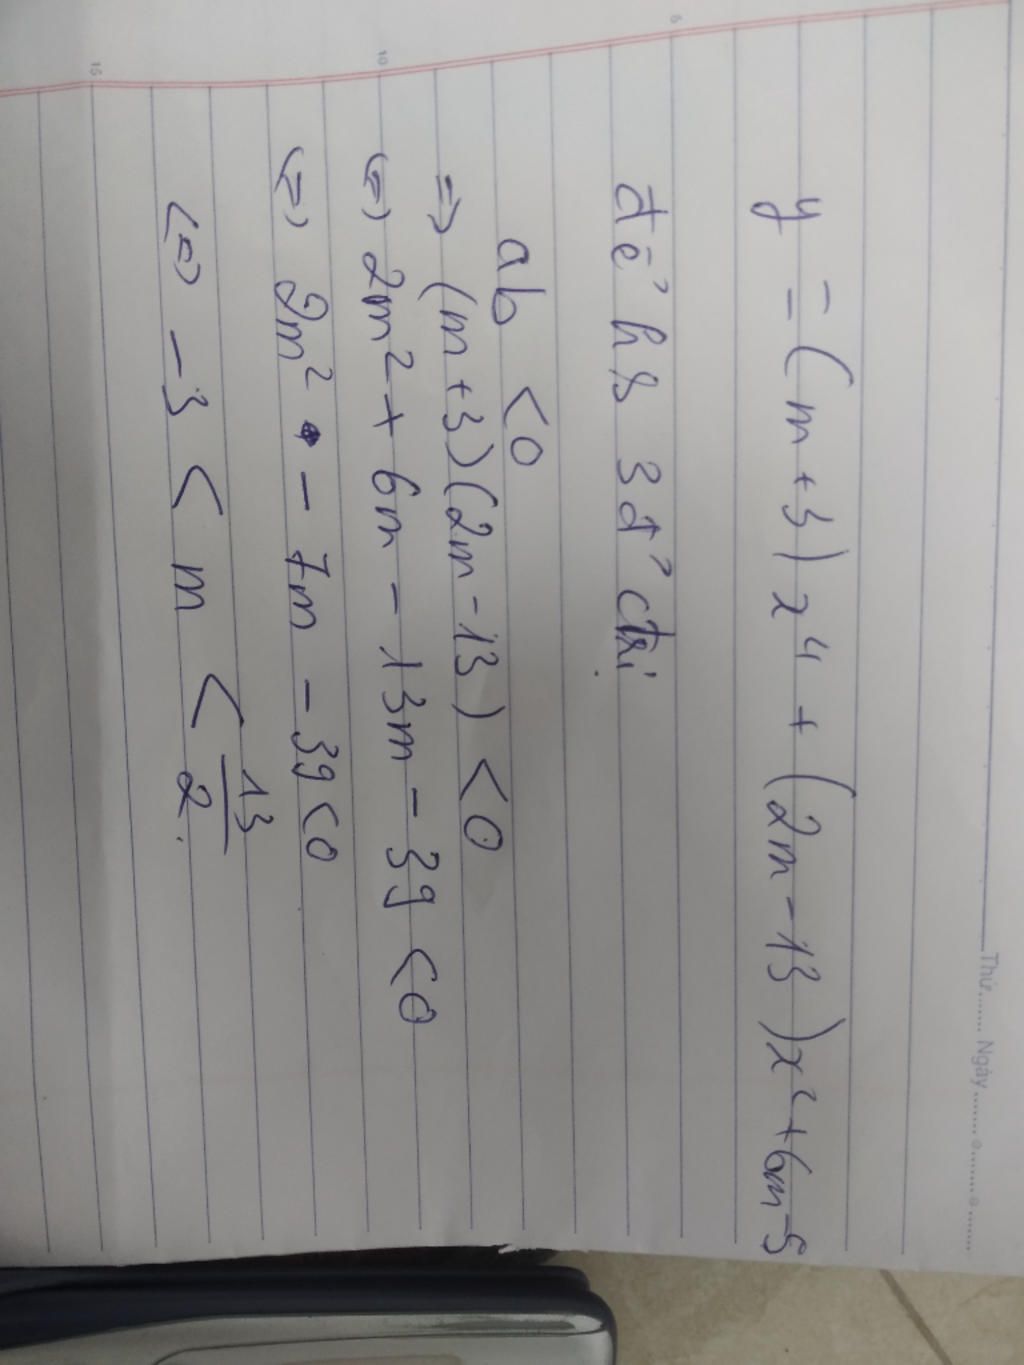 Thứ....... Ngày.......
y = (m + 3) x⁴ + (2m - 13) x² + 6m - 5
5
để hs 3đ' ctri
ab < 0
=> (m + 3)(2m - 13) < 0
10
<=> 2m² + 6m - 13m - 39 < 0
<=> 2m² - 7m - 39 < 0
<=> -3 < m < 13/2.
15